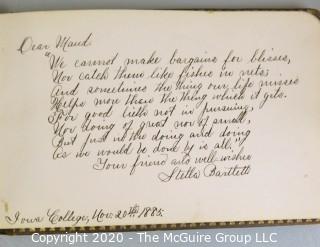 Dear Maud.
"We cannot make bargains for blisses,
Nor catch them like fishes in nets;
And sometimes the thing our life misses
Helps more than the thing which it gets.
For good lieth not in pursuing,
Nor doing of great nor of small,
But just in the doing and doing
As we would be done by is all."
Your friend and well-wisher
Stella Bartlett
Iowa College, Nov. 20th 1885.
Copyright 2020 - The McGuire Group, LLC